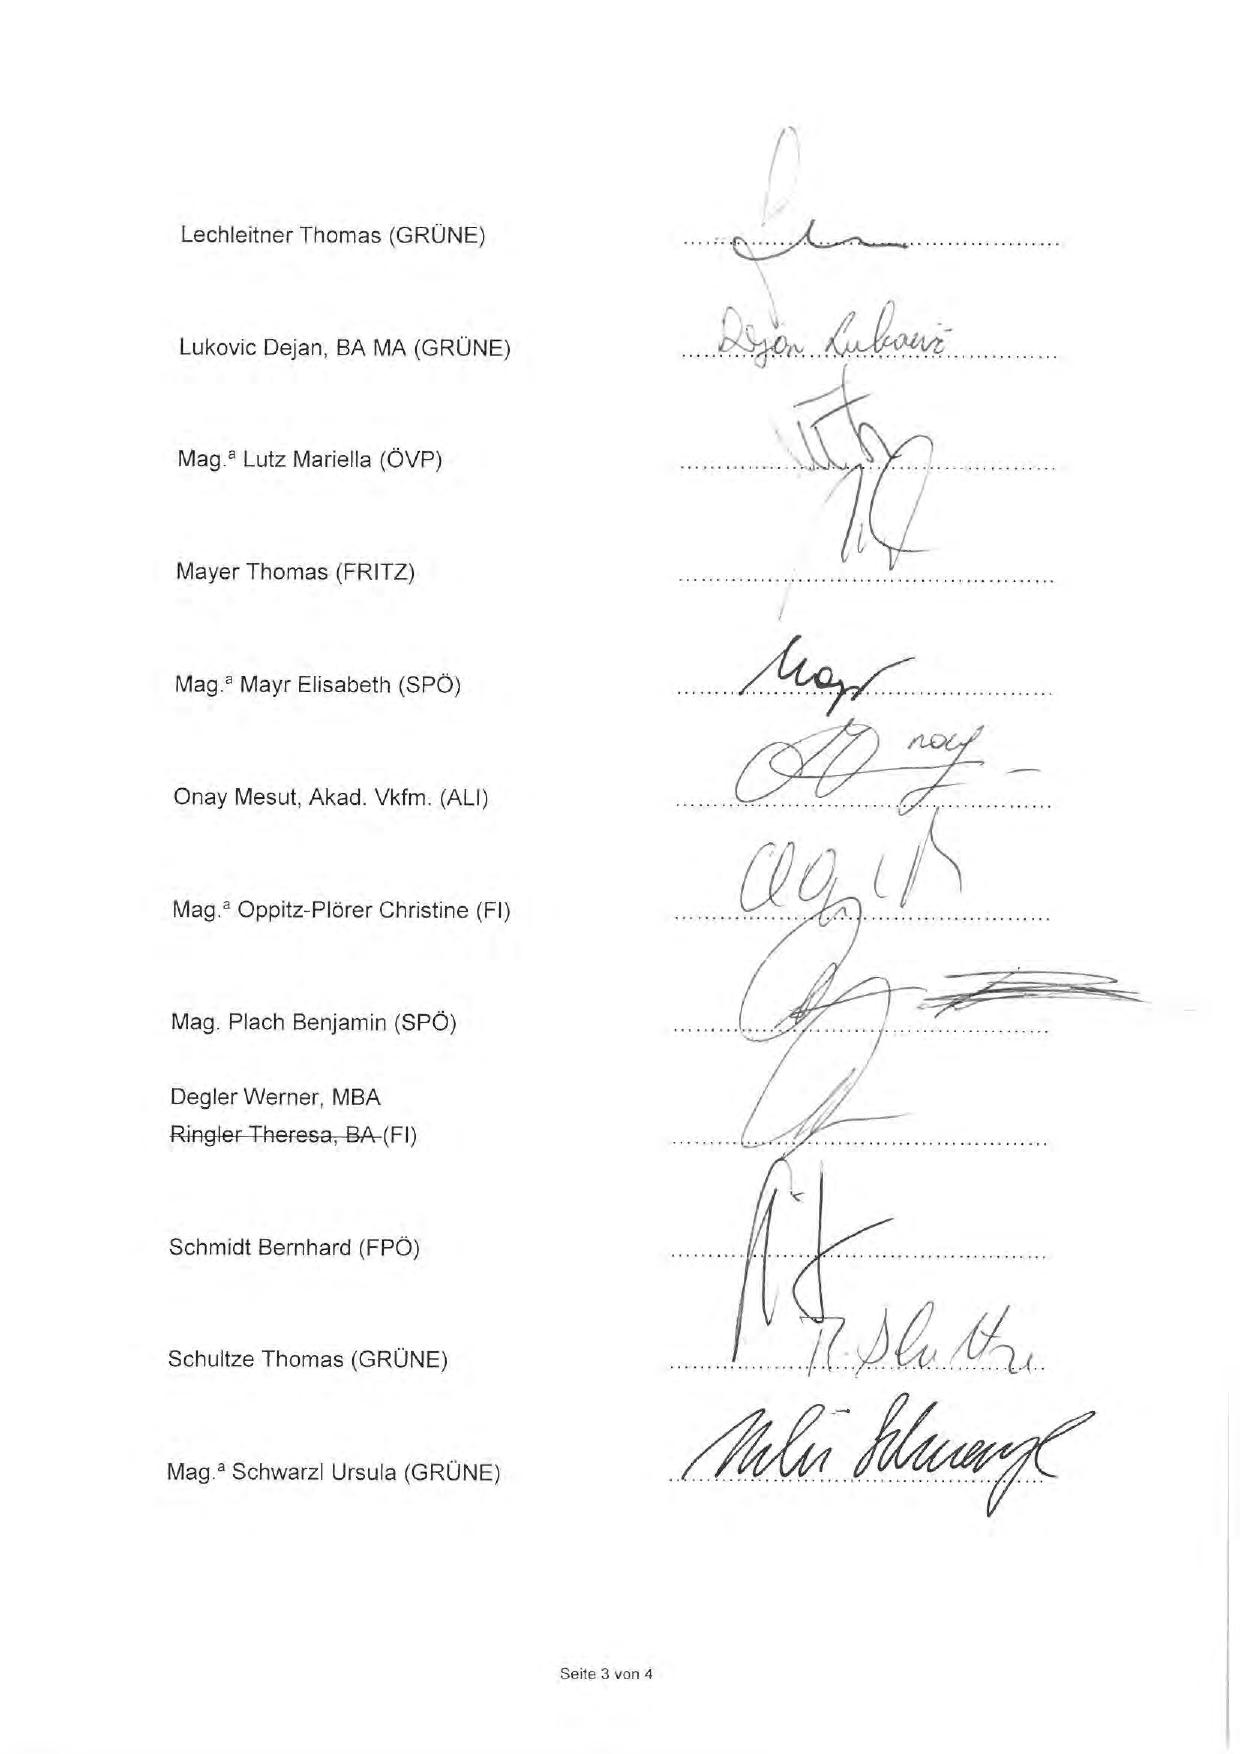 Lechleitner Thomas (GRÜNE)
Lukovic Dejan, BA MA (GRÜNE) Dejan Lukovic
Mag.ª Lutz Mariella (ÖVP)
Mayer Thomas (FRITZ)
Mag.ª Mayr Elisabeth (SPÖ) Mayr
Onay Mesut, Akad. Vkfm. (ALI)
Mag.ª Oppitz-Plörer Christine (FI)
Mag. Plach Benjamin (SPÖ)
Degler Werner, MBA
Ringler Theresa, BA (FI)
Schmidt Bernhard (FPÖ)
Schultze Thomas (GRÜNE)
Mag.ª Schwarzl Ursula (GRÜNE)
Seite 3 von 4